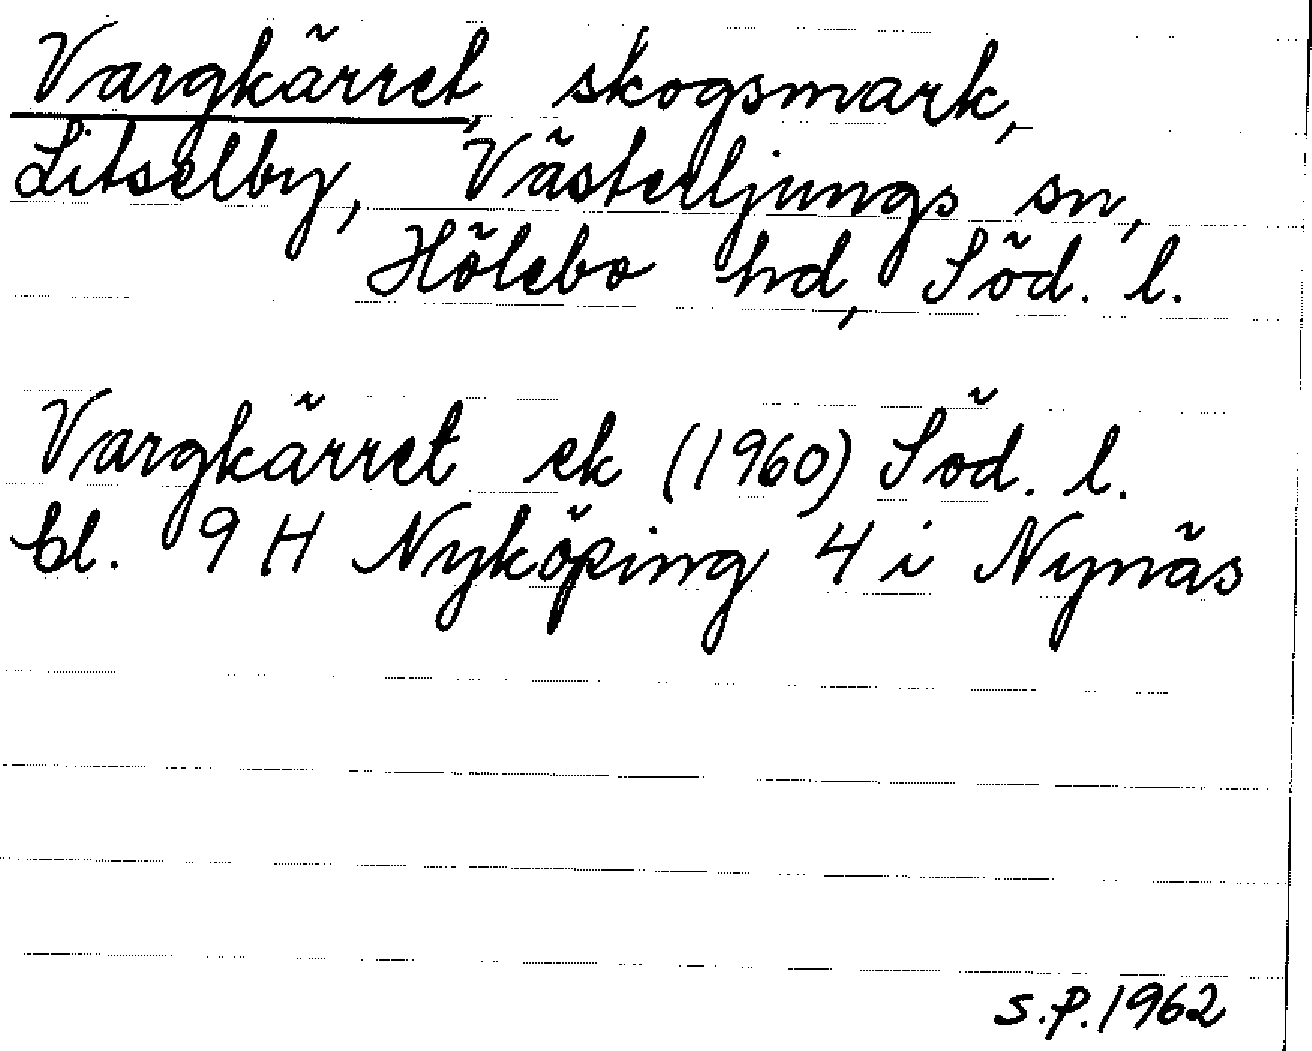 Vargkärret, skogsmark,
Litselby, Västerljungs sn,
Hölebo hd, Söd. l.
Vargkärret ek (1960) Söd. l.
bl. 9 H Nyköping 4 i Nynäs
S.P. 1962